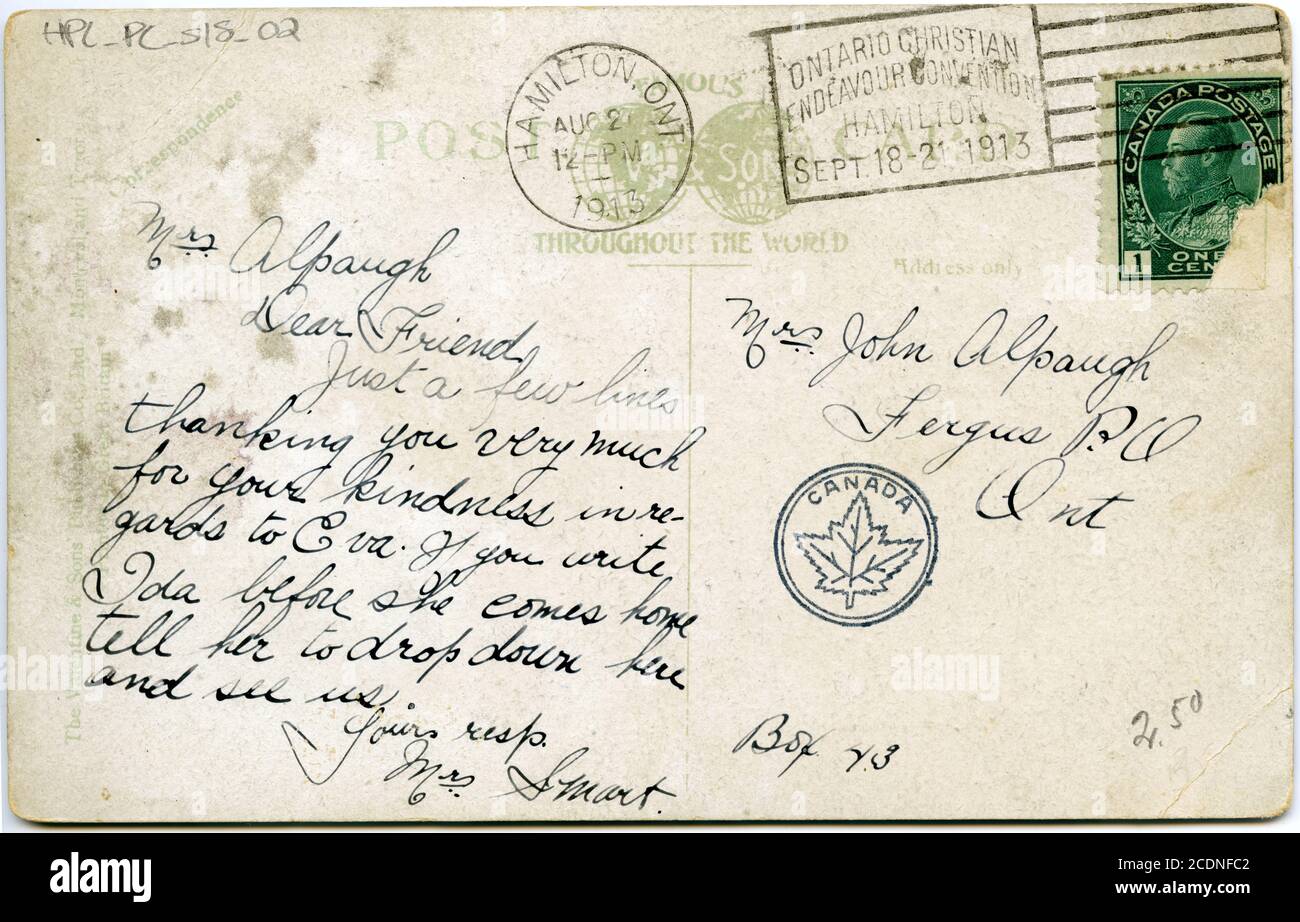 HPC_PC_518_02
HAMILTON, ONT
AUG 2
12-PM
1913
ONTARIO CHRISTIAN
ENDEAVOUR CONVENTION
HAMILTON
SEPT. 18-21 1913
CANADA POSTAGE
1 ONE CEN
FAMOUS
POST CARD
& SONS
THROUGHOUT THE WORLD
orrespondence
Address only
The Valentine & Sons Co. Ltd. Montreal and Toron
Mrs Alpaugh
Dear Friend
Just a few lines
thanking you very much
for your kindness in re-
gards to Eva. If you write
Ida before she comes home
tell her to drop down here
and see us
Yours resp.
Mrs Smart.
Mrs John Alpaugh
Fergus P.O
Ont
CANADA
Box 43
2.50
alamy
Image ID: 2CDNFC2
www.alamy.com